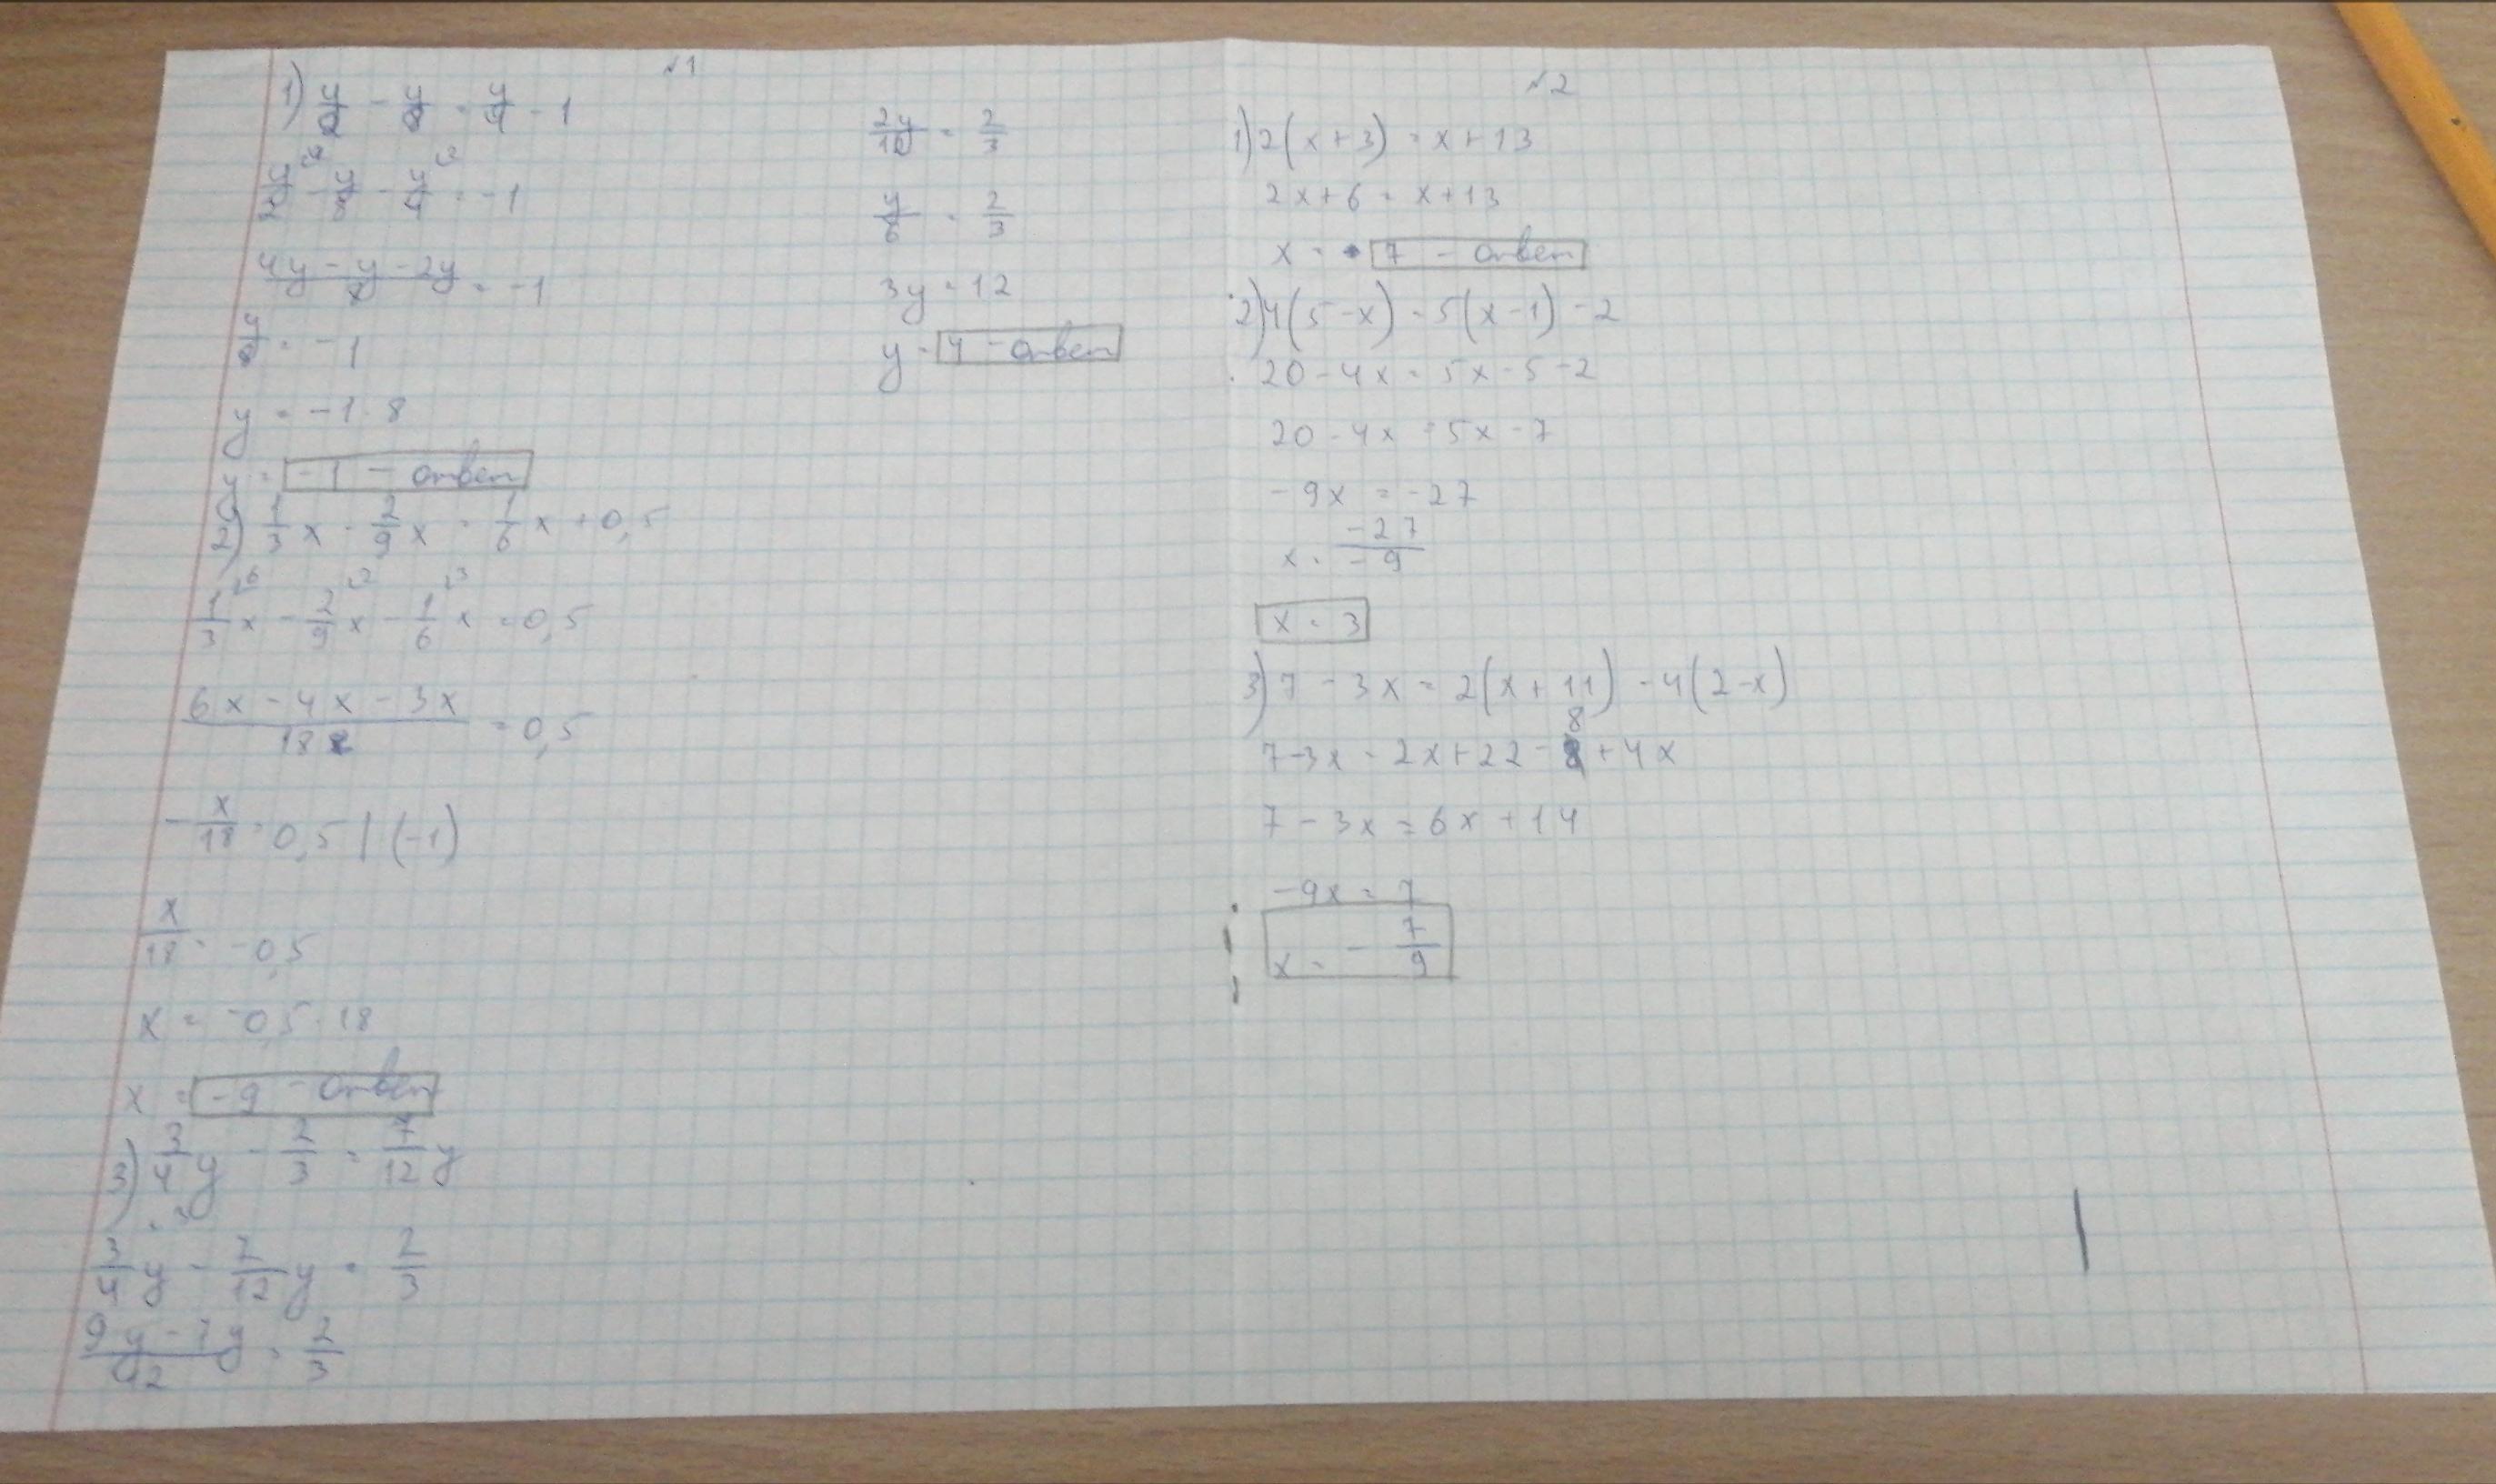 №1
1) y/2 - y/8 = y/4 - 1
y/2 - y/8 - y/4 = -1
(4y - y - 2y)/8 = -1
y/8 = -1
y = -1 · 8
y = -1 - ответ
2) 1/3 x - 2/9 x = 1/6 x + 0,5
1/3 x - 2/9 x - 1/6 x = 0,5
(6x - 4x - 3x)/18 = 0,5
- x/18 = 0,5 | (-1)
x/18 = -0,5
x = -0,5 · 18
x = -9 - ответ
3) 3/4 y - 2/3 = 7/12 y
3/4 y - 7/12 y = 2/3
(9y - 7y)/12 = 2/3
2y/12 = 2/3
y/6 = 2/3
3y = 12
y = 4 - ответ
№2
1) 2(x + 3) = x + 13
2x + 6 = x + 13
x = 7 - ответ
2) 4(5 - x) = 5(x - 1) - 2
20 - 4x = 5x - 5 - 2
20 - 4x = 5x - 7
-9x = -27
x = -27/-9
x = 3
3) 7 - 3x = 2(x + 11) - 4(2 - x)
7 - 3x = 2x + 22 - 8 + 4x
7 - 3x = 6x + 14
-9x = 7
x = - 7/9